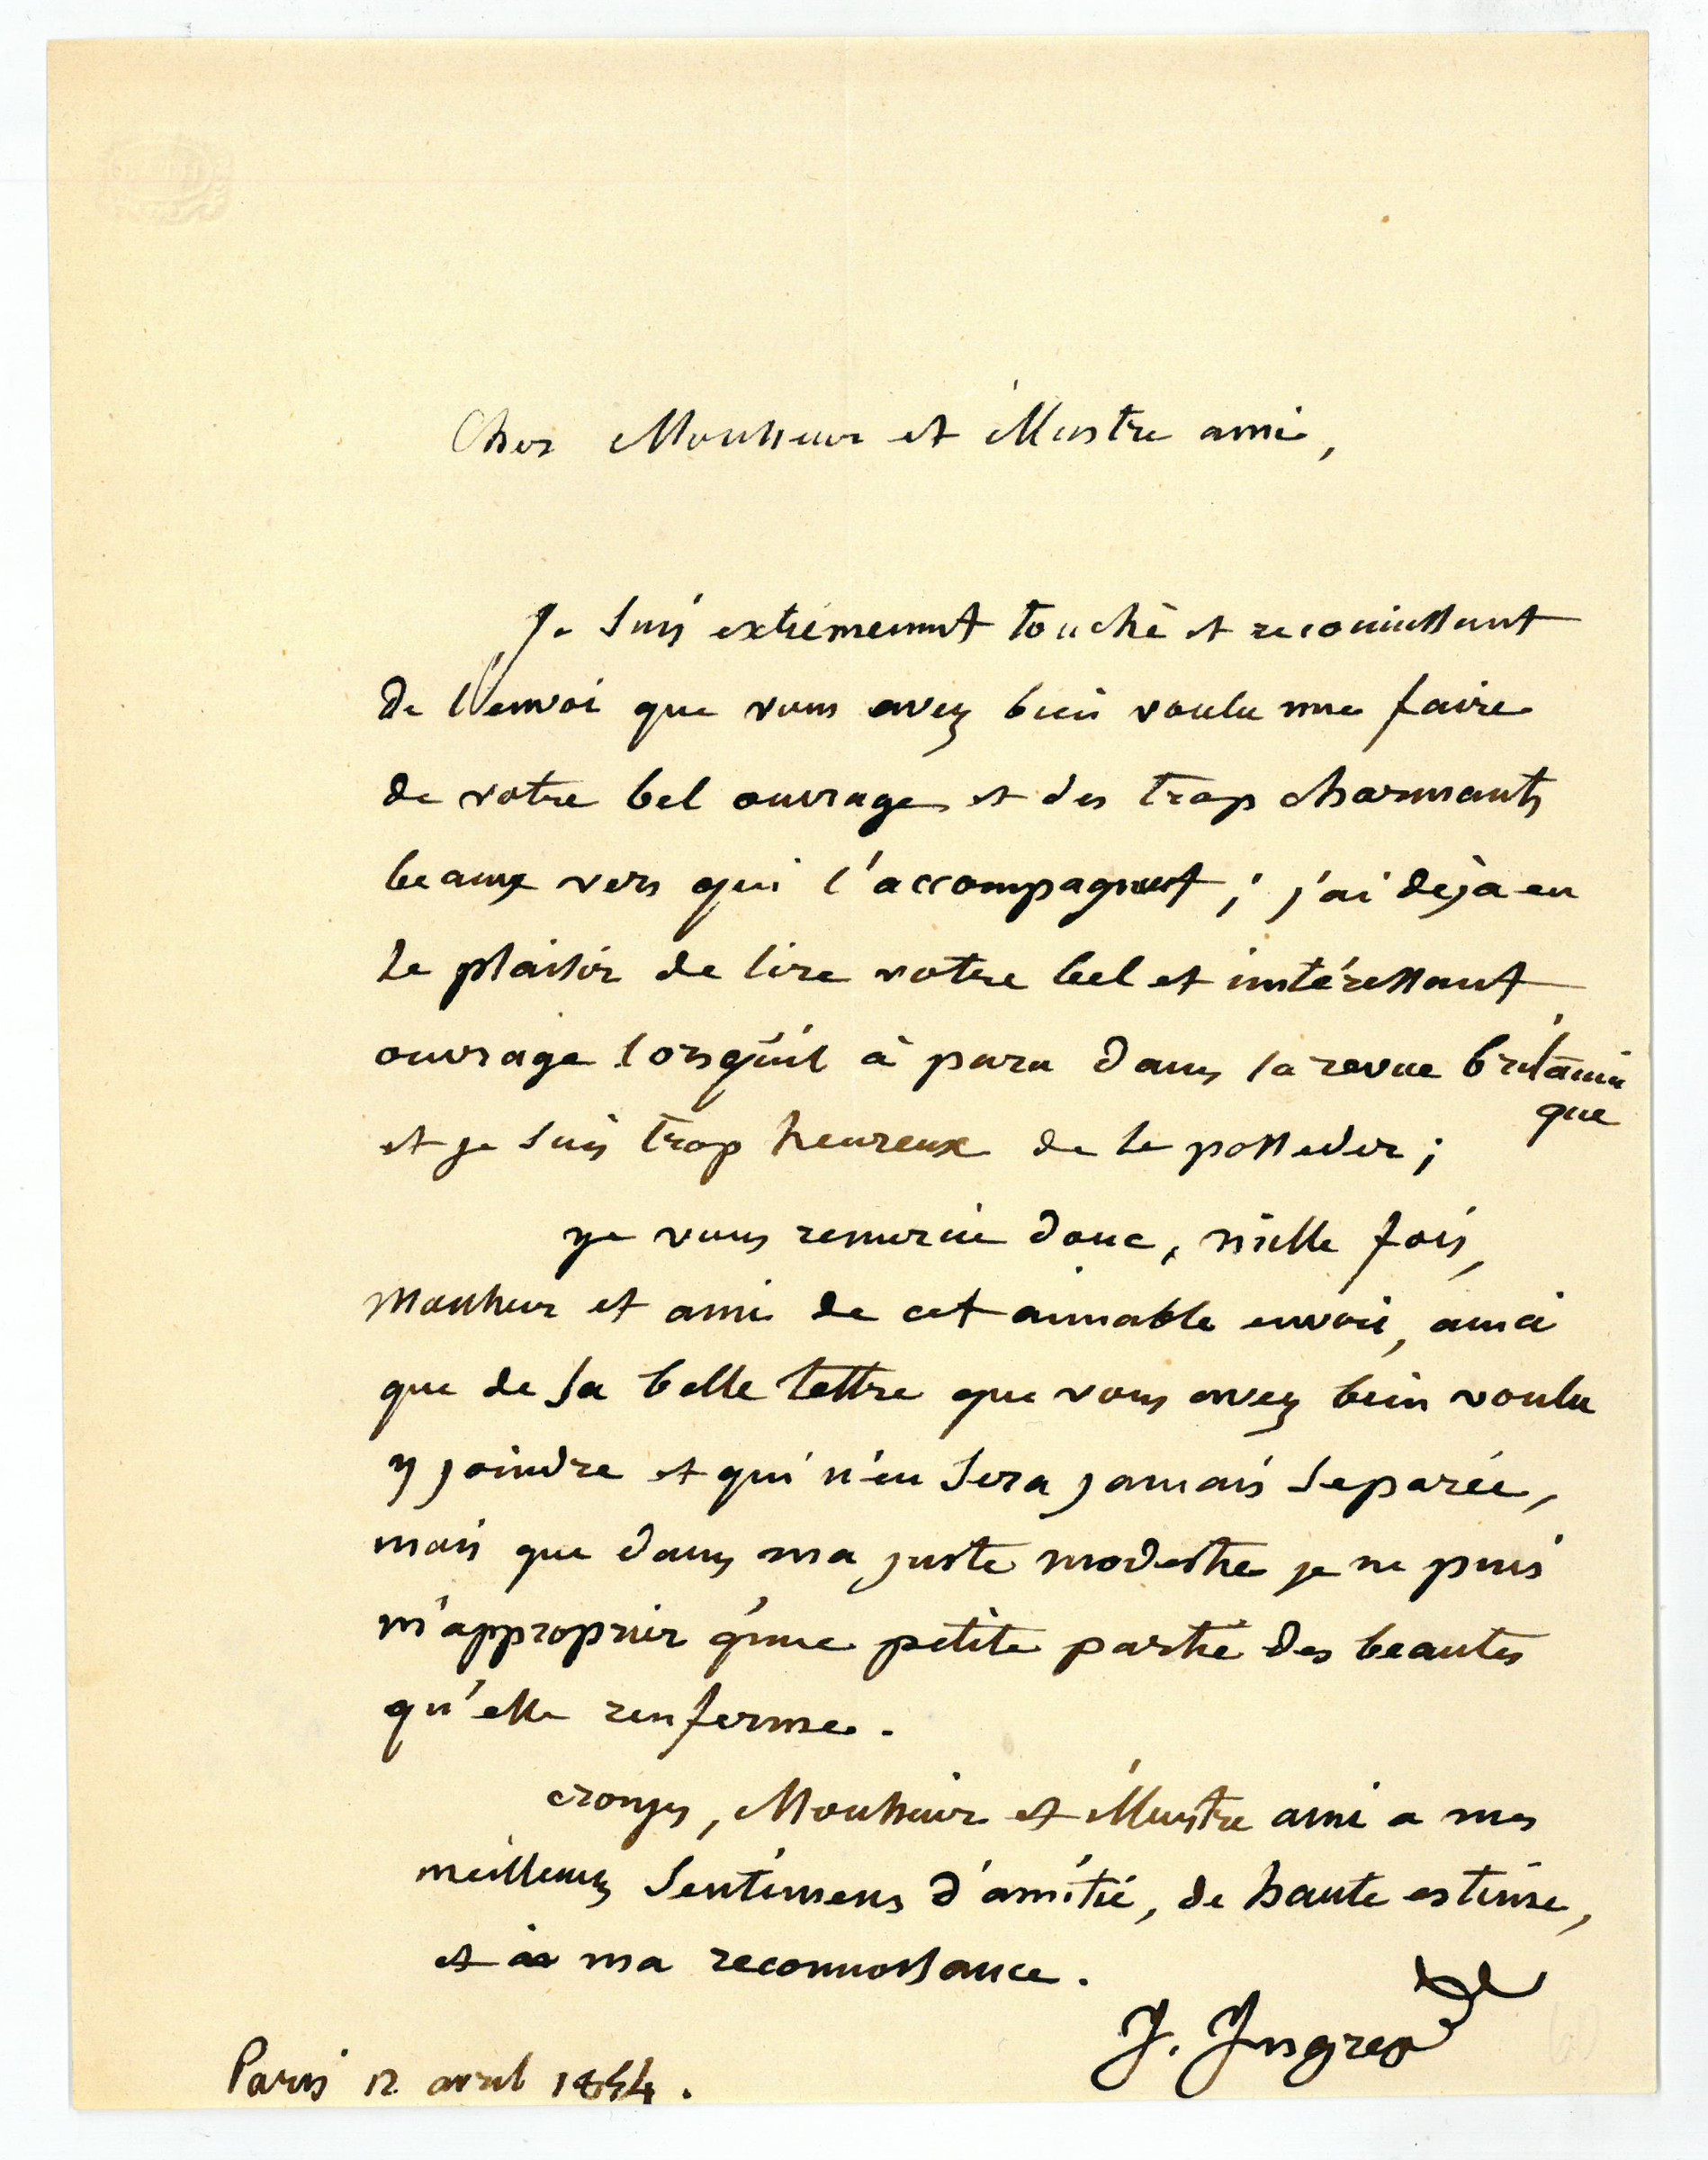 Cher Monsieur et illustre ami,
Je suis extrémement touché et reconnaissant
de l'envoi que vous avez bien voulu me faire
de votre bel ouvrage et des trop charmants
beaux vers qui l'accompagnent ; j'ai déjà eu
le plaisir de lire votre bel et intéressant
ouvrage lorsqu'il à paru dans la revue britanni
que
et je suis trop heureux de le posseder ;
je vous remercie donc, mille fois,
Monsieur et ami de cet aimable envoi, ainsi
que de sa belle lettre que vous avez bien voulu
y joindre et qui n'en sera jamais separée,
mais que dans ma juste modestie je ne puis
m'approprier q'une petite partie des beautes
qu'elle renferme.
croyez, Monsieur et illustre ami a mes
meilleurs sentimens d'amitié, de haute estime,
et à ma reconnoissance.
J. Ingres
Paris 12 avril 1854.